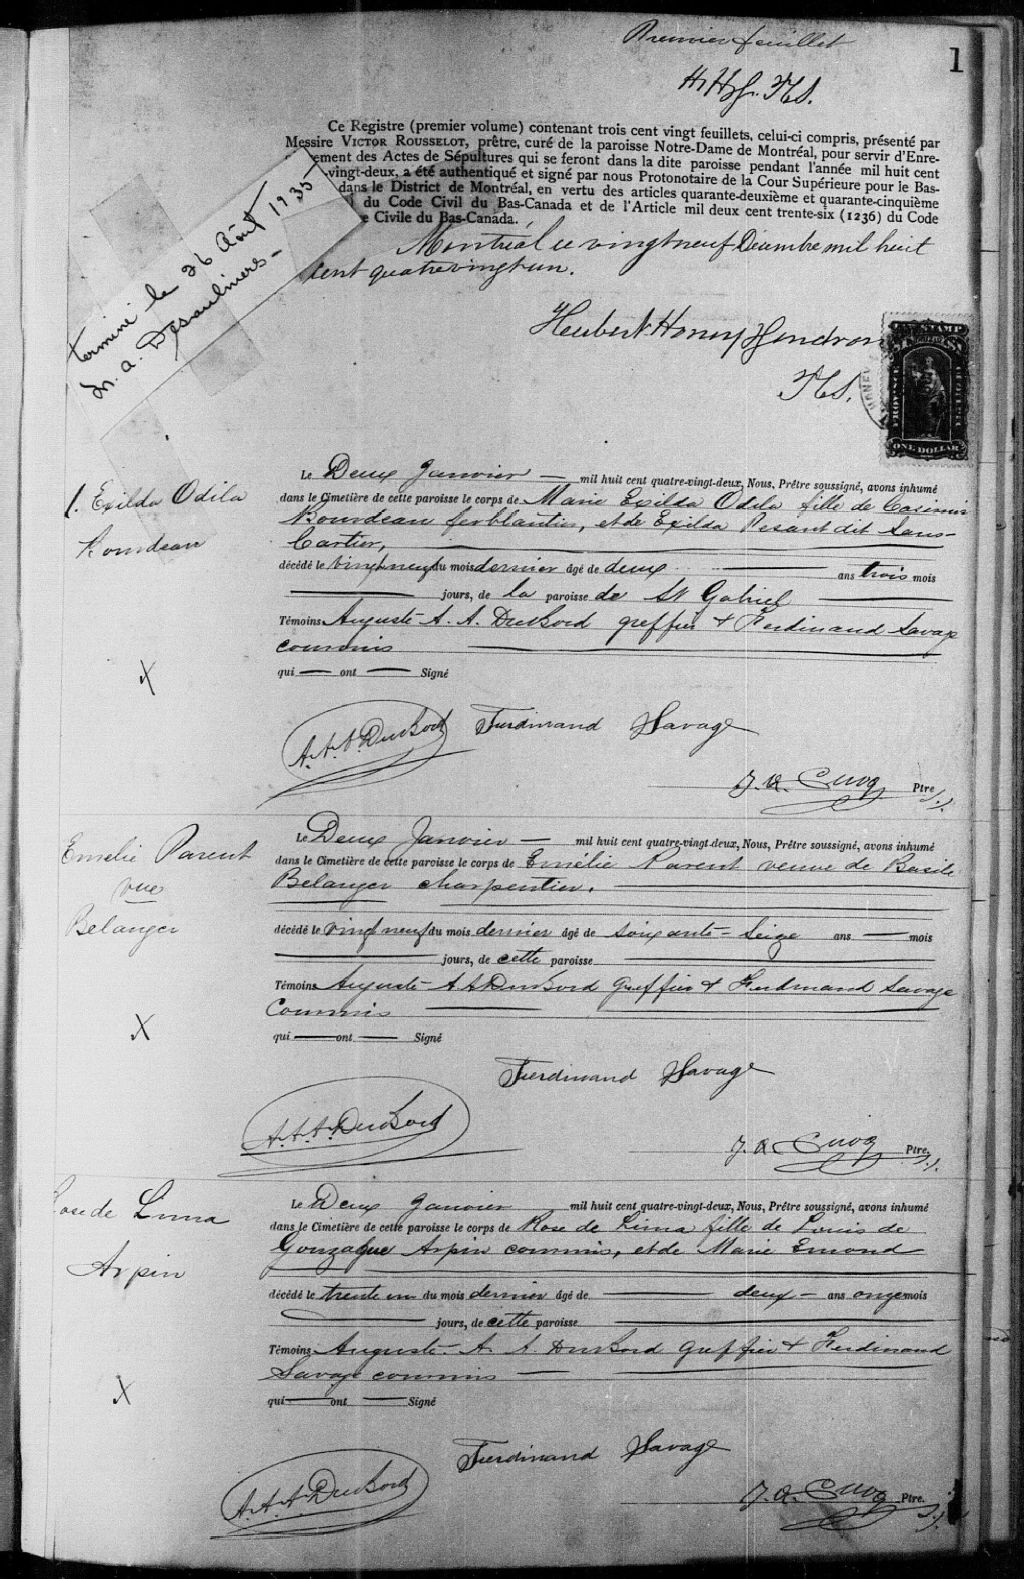 Premier feuillet
1
HHH. PCS.
Ce Registre (premier volume) contenant trois cent vingt feuillets, celui-ci compris, présenté par
Messire VICTOR ROUSSELOT, prêtre, curé de la paroisse Notre-Dame de Montréal, pour servir d'Enre-
ement des Actes de Sépultures qui se feront dans la dite paroisse pendant l'année mil huit cent
-vingt-deux, a été authentiqué et signé par nous Protonotaire de la Cour Supérieure pour le Bas-
dans le District de Montréal, en vertu des articles quarante-deuxième et quarante-cinquième
du Code Civil du Bas-Canada et de l'Article mil deux cent trente-six (1236) du Code
e Civile du Bas-Canada.
terminé le 26 Août 1935
M. A. Desaulniers-
Montréal ce vingt neuf Décembre mil huit
cent quatrevingt un.
Hubert Honey Gendron
PCS.
STAMP
PROVINCE
QUEBEC
ONE DOLLAR
1. Exilda Odila
Bourdeau
X
Le Deux Janvier — mil huit cent quatre-vingt-deux, Nous, Prêtre soussigné, avons inhumé
dans le Cimetière de cette paroisse le corps de Marie Exilda Odila fille de Casimir
Bourdeau ferblantier, et de Exilda Pesant dit Sans-
Cartier,
décédé le vingt neuf du mois dernier âgé de deux — ans trois mois
— jours, de la paroisse de St Gabriel —
Témoins Auguste A. A. DuBord greffier & Ferdinand Savage
commis —
qui — ont — Signé
A. A. A. DuBord Ferdinand Savage
J. A. Cuoq Ptre S.S.
Emelie Parent
vve
Belanger
X
Le Deux Janvier — mil huit cent quatre-vingt-deux, Nous, Prêtre soussigné, avons inhumé
dans le Cimetière de cette paroisse le corps de Emélie Parent veuve de Basile
Belanger charpentier. —
décédé le vingt neuf du mois dernier âgé de soixante-seize ans — mois
— jours, de cette paroisse —
Témoins Auguste A A DuBord greffier & Ferdinand Savage
Commis —
qui — ont — Signé
Ferdinand Savage
A. A. A. DuBord
J. A. Cuoq Ptre. S.S.
Rose de Lima
Arpin
X
Le Deux Janvier mil huit cent quatre-vingt-deux, Nous, Prêtre soussigné, avons inhumé
dans le Cimetière de cette paroisse le corps de Rose de Lima fille de Louis de
Gonzague Arpin commis, et de Marie Emond
décédé le trente un du mois dernier âgé de — deux — ans onze mois
— jours, de cette paroisse —
Témoins Auguste A. A. DuBord greffier & Ferdinand
Savage commis —
qui — ont — Signé
Ferdinand Savage
A. A. A. DuBord
J. A. Cuoq Ptre. S.S.